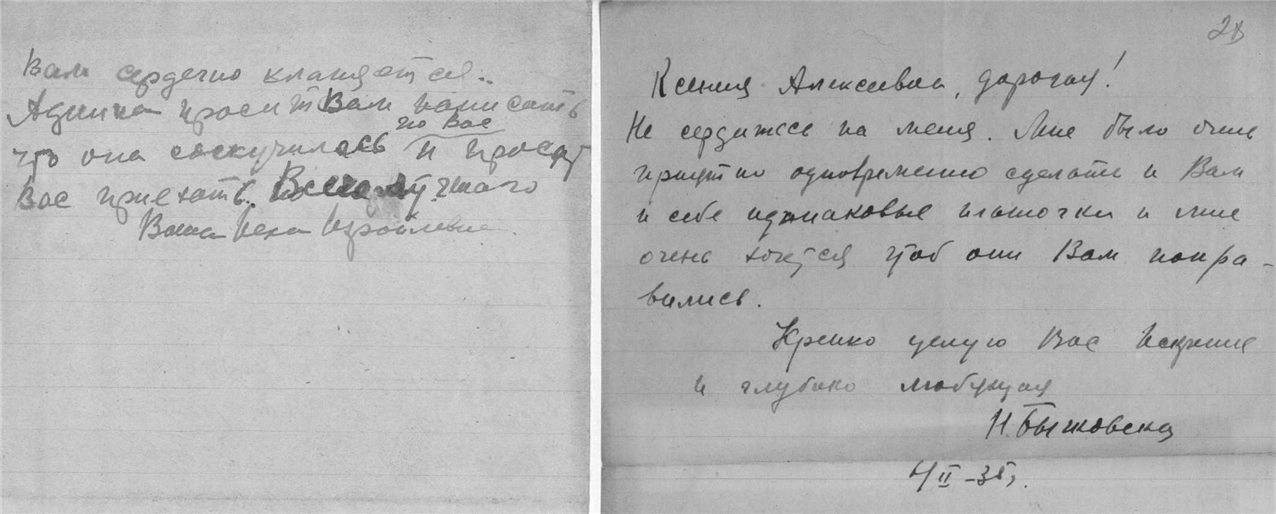 Вам сердечно кланяется..
Адинка просит Вам написать
что она соскучилась по Вас и просит
Вас приехать. Всего лучшего
Ваша Израилевна
Ксения Алексеевна, дорогая!
Не сердитесь на меня. Мне было очень
приятно одновременно сделать и Вам
и себе одинаковые платочки и мне
очень хочется чтоб они Вам понра-
вились.
Крепко целую Вас Искренне
и глубоко любящая
Н. Быховская